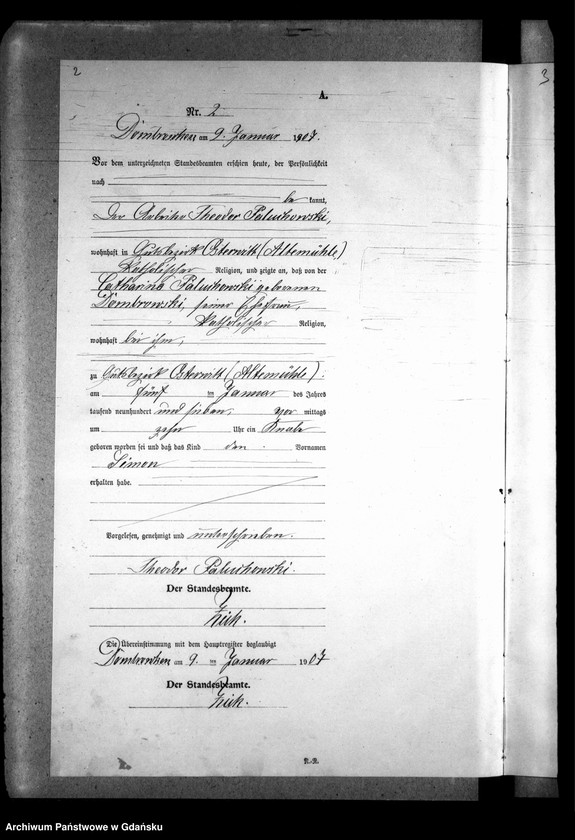 2
3
A.
Nr. 2
Dombrowken am 9. Januar 1907.
Vor dem unterzeichneten Standesbeamten erschien heute, der Persönlichkeit
nach
be kannt,
der Arbeiter Theodor Paluchowski,
wohnhaft in Gutsbezirk Osterwitt (Altemühle)
katholischer Religion, und zeigte an, daß von der
Catharina Paluchowski geborenen
Dombrowski, seiner Ehefrau,
katholischer Religion,
wohnhaft bei ihm,
zu Gutsbezirk Osterwitt (Altemühle)
am fünf ten Januar des Jahres
tausend neunhundert und sieben, vor mittags
um zehn Uhr ein Knabe
geboren worden sei und daß das Kind den Vornamen
Simon
erhalten habe.
Vorgelesen, genehmigt und unterschrieben.
Theodor Paluchowski.
Der Standesbeamte.
Die Übereinstimmung mit dem Hauptregister beglaubigt
Dombrowken am 9. ten Januar 1907
Der Standesbeamte.
Archiwum Państwowe w Gdańsku